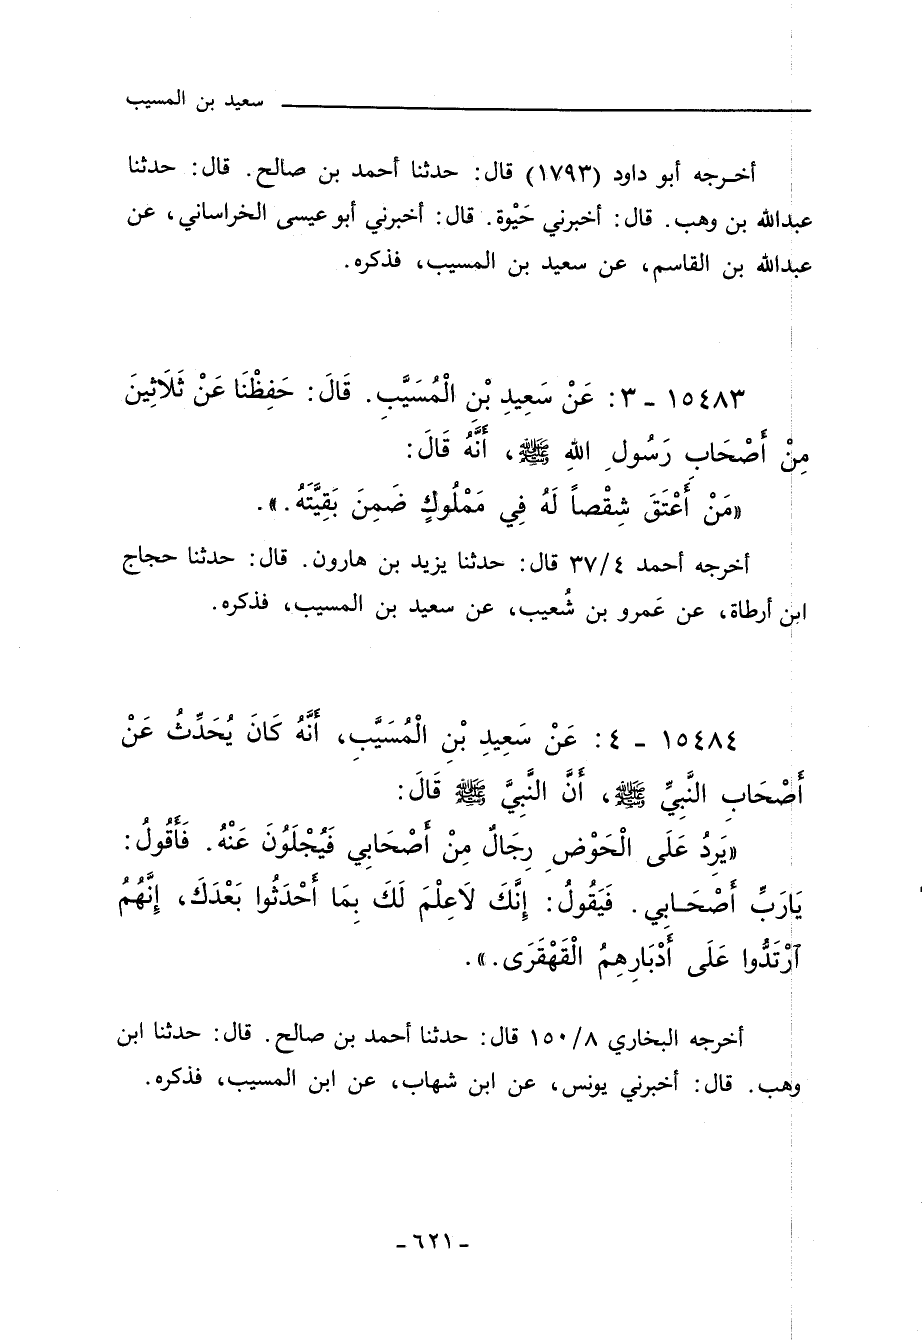 سعيد بن المسيب
أخـرجه أبو داود (١٧٩٣) قال: حدثنا أحمد بن صالح. قال: حدثنا
عبدالله بن وهب. قال: أخبرني حَيْوة. قال: أخبرني أبو عيسى الخراساني، عن
عبدالله بن القاسم، عن سعيد بن المسيب، فذكره.
١٥٤٨٣ ـ ٣: عَنْ سَعِيدِ بْنِ الْمُسَيَّبِ. قَالَ: حَفِظْنَا عَنْ ثَلَاثِينَ
مِنْ أَصْحَابِ رَسُولِ اللهِ ﷺ، أَنَّهُ قَالَ:
«مَنْ أَعْتَقَ شِقْصاً لَهُ فِي مَمْلُوكٍ ضَمِنَ بَقِيَّتَهُ.».
أخرجه أحمد ٣٧/٤ قال: حدثنا يزيد بن هارون. قال: حدثنا حجاج
ابن أرطاة، عن عَمرو بن شُعيب، عن سعيد بن المسيب، فذكره.
١٥٤٨٤ ـ ٤: عَنْ سَعِيدِ بْنِ الْمُسَيَّبِ، أَنَّهُ كَانَ يُحَدِّثُ عَنْ
أَصْحَابِ النَّبِيِّ ﷺ، أَنَّ النَّبِيَّ ﷺ قَالَ:
«يَرِدُ عَلَى الْحَوْضِ رِجَالٌ مِنْ أَصْحَابِي فَيُجْلَوْنَ عَنْهُ. فَأَقُولُ:
يَارَبِّ أَصْحَـابِي. فَيَقُولُ: إِنَّكَ لَاعِلْمَ لَكَ بِمَا أَحْدَثُوا بَعْدَكَ، إِنَّهُمُ
آرْتَدُّوا عَلَى أَدْبَارِهِمُ الْقَهْقَرَى.».
أخرجه البخاري ١٥٠/٨ قال: حدثنا أحمد بن صالح. قال: حدثنا ابن
وهب. قال: أخبرني يونس، عن ابن شهاب، عن ابن المسيب، فذكره.
ـ ٦٢١ ـ